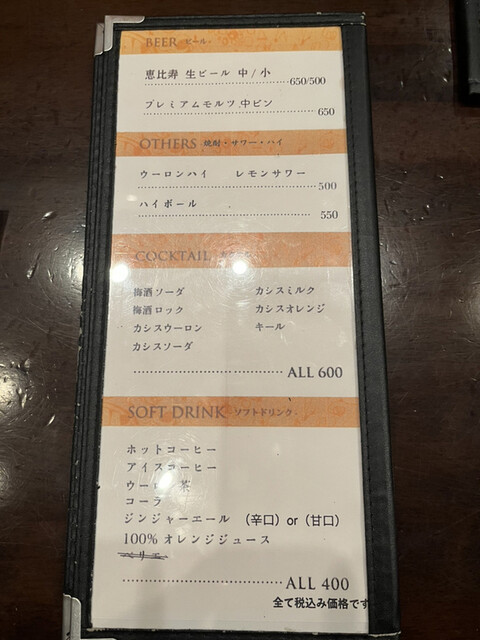 BEER ビール
恵比寿 生ビール 中 / 小
650/500
プレミアムモルツ 中ビン
650
OTHERS 焼酎・サワー・ハイ
ウーロンハイ レモンサワー
500
ハイボール
550
COCKTAIL
梅酒ソーダ カシスミルク
梅酒ロック カシスオレンジ
カシスウーロン キール
カシスソーダ
ALL 600
SOFT DRINK ソフトドリンク
ホットコーヒー
アイスコーヒー
ウーロン茶
コーラ
ジンジャーエール (辛口) or (甘口)
100% オレンジジュース
ペリエ
ALL 400
全て税込み価格です